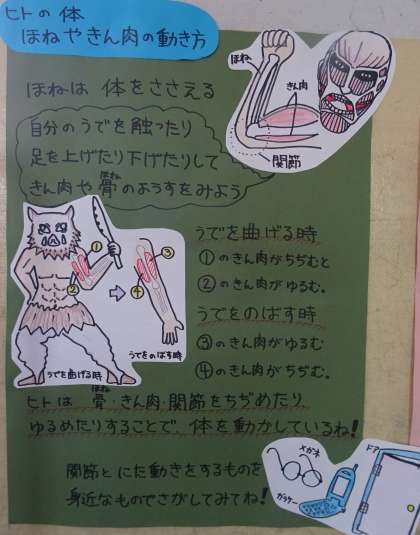 ヒトの体
ほねやきん肉の動き方
ほね
きん肉
関節
ほねは 体をささえる
自分のうでを触ったり
足を上げたり下げたりして
きん肉や骨のようすをみよう
ほね
① ③
② ④
うでを曲げる時
うでをのばす時
うでを曲げる時
①のきん肉がちぢむと
②のきん肉がゆるむ。
うでをのばす時
③のきん肉がゆるむ
④のきん肉がちぢむ。
ほね
ヒトは 骨・きん肉・関節をちぢめたり
ゆるめたりすることで、体を動かしているね!
関節とにた動きをするものを
身近なものでさがしてみてね!
メガネ
ガラケー
ドア